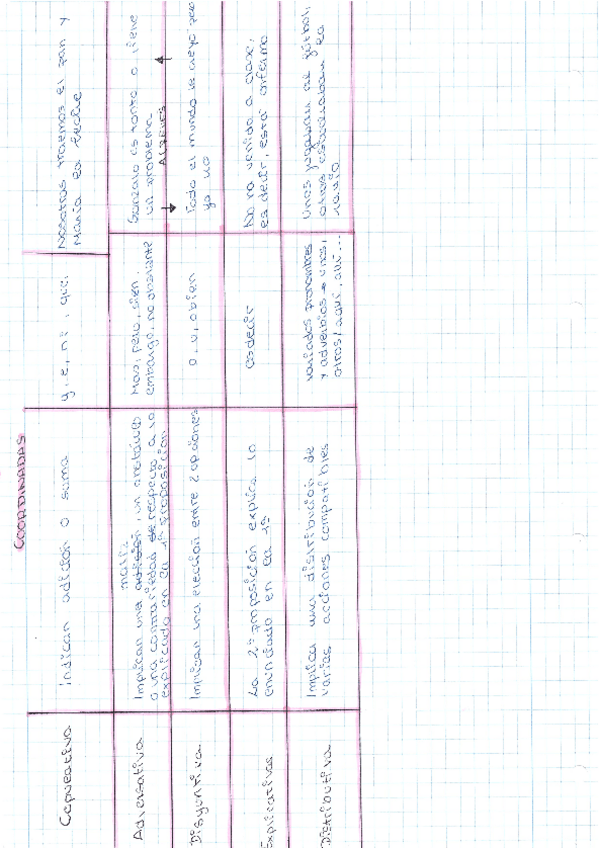 COORDINADAS
Copulativa
indican adición o suma
y, e, ni, que,
Nosotras traemos el pan y
María la leche
Adversativa
matiz
Implican una adición, un obstáculo
o una contrariedad de respecto a lo
explicado en la 1ª proposición
Mas, pero, sien,
embargo, no obstante
Gonzalo es tonto o tiene
un problema
AL REVES
Disyuntiva
Implican una elección entre 2 opciones
o, u, o bien
Todo el mundo se creyó pero
yo no
Explicativas
La 2ª proposición explica lo
enunciado en la 1ª
es decir
No ha venido a clase,
es decir, está enfermo
Distributiva
Implica una distribución de
varias acciones compatibles
variados pronombres
y adverbios → unos,
otros / aquí, allí...
Unos jugaban al fútbol,
otros escuchaban la
radio